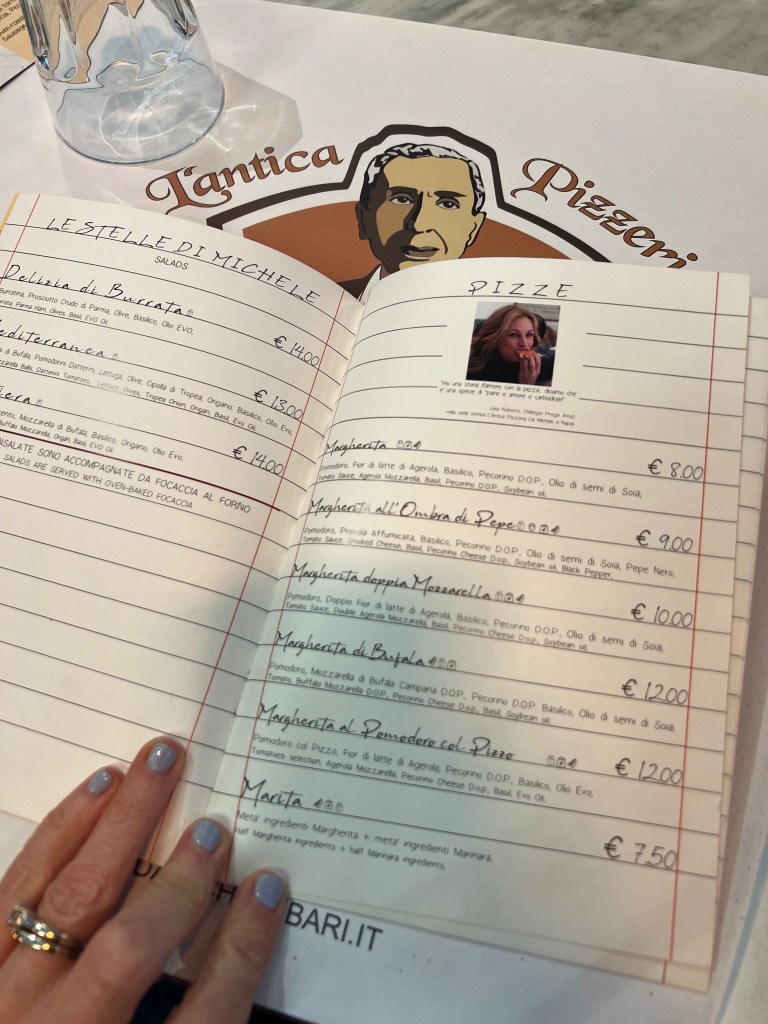 L'antica Pizzeri
LE STELLE DI MICHELE
SALADS
Delizia di Burrata
Burratina, Prosciutto Crudo di Parma, Olive, Basilico, Olio EVO,
Parma Ham, Olives, Basil, EVO Oil.
€ 14.00
editerranea
di Bufala, Pomodorini Datterini, Lattuga, Olive, Cipolla di Tropea, Origano, Basilico, Olio Evo,
Balls, Datterini Tomatoes, Lettuce, Olives, Tropea Onion, Organ, Basil, Evo Oil.
€ 13.00
era
ento, Mozzarella di Bufala, Basilico, Organo, Olio Evo,
Buffalo Mozzarella, Organ, Basil, EVO Oil.
€ 14.00
NSALATE SONO ACCOMPAGNATE DA FOCACCIA AL FORNO
SALADS ARE SERVED WITH OVEN-BAKED FOCACCIA
PIZZE
"Ho una storia d'amore con la pizza, diciamo che
e' una specie di "pane e amore e carboidrati"
Julia Roberts (Mangia Prega Ama)
nella sede storica L'Antica Pizzeria Da Michele a Napoli
Margherita
€ 8.00
Pomodoro, Fior di latte di Agerola, Basilico, Pecorino D.O.P., Olio di semi di Soia,
Tomato Sauce, Agerola Mozzarella, Basil, Pecorino D.O.P., Soybean oil.
Margherita all'Ombra di Pepe
€ 9.00
Pomodoro, Provola Affumicata, Basilico, Pecorino D.O.P., Olio di semi di Soia, Pepe Nero,
Tomato Sauce, Smoked Cheese, Basil, Pecorino Cheese D.O.p., Soybean oil, Black Pepper.
Margherita doppia Mozzarella
€ 10.00
Pomodoro, Doppio Fior di latte di Agerola, Basilico, Pecorino D.O.P., Olio di semi di Soia,
Tomato Sauce, Double Agerola Mozzarella, Basil, Pecorino Cheese D.O.p., Soybean oil.
Margherita di Bufala
€ 12.00
Pomodoro, Mozzarella di Bufala Campana D.O.P., Pecorino D.O.P. Basilico, Olio di semi di Soia,
Tomato, Buffalo Mozzarella D.O.P., Pecorino Cheese D.O.p., Basil, Soybean oil.
Margherita al Pomodoro col Pizzo
€ 12.00
Pomodoro col Pizzo, Fior di latte di Agerola, Pecorino D.O.P., Basilico, Olio Evo,
Tomatoes selection, Agerola Mozzarella, Pecorino Cheese D.O.p., Basil, Evo Oil.
Marita
€ 7.50
Meta' ingredienti Margherita + meta' ingredienti Marinara,
Half Margherita ingredients + half Marinara ingredients,
BARI.IT